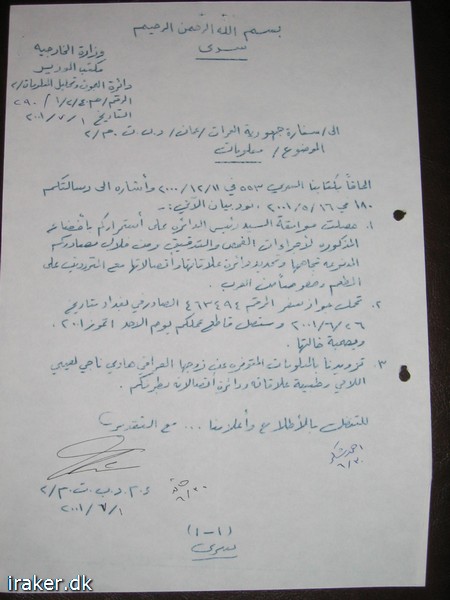 بسم الله الرحمن الرحيم
سري
وزارة الخارجية
مكتب الوزير
دائرة البحوث وتحليل المعلومات/٢
الرقم/ ٢٩٠/١/٢/٤
التاريخ ٢٠٠١/٧/١
الى/ سفارة جمهورية العراق/عمان/ د.ب.ت.م/٢
الموضوع/ معلومات
الحاقاً بكتابنا السري ٥٥٣ في ٢٠٠٠/١٢/١١ وأشاره الى رسالتكم
١٨٠ في ٢٠٠١/٥/١٦. نود بيان الآتي:
١. حصلت موافقة السيد رئيس الدائرة على أستمراركم بأخضاع
المذكوره لأجراءات الفحص والتدقيق ومن خلال مصادركم
المتنوعه تجاهها وتحديد دائرة علاقاتها واتصالاتها مع المترددين على
المطعم وخصوصاً من العرب
٢. تحمل جواز سفر المرقم ٤٦٣٤٩٤ الصادر في بغداد بتاريخ
٢٠٠١/٦/٢٦ وستصل قاطع عملكم يوم الاحد ١ تموز ٢٠٠١.
وبصحبة خالتها.
٣. تزويدنا بالمعلومات المتوفره عن زوجها العراقي هادي ناجي لعيبي
اللامي وطبيعة علاقاته ودائرة اتصالاته بطرفكم.
للتفضل بالأطلاع وأعلامنا ... مع التقدير
احمد شكر
٦/٣٠
٦/٣٠
٢/د.ب.ت.م
٢٠٠١/٧/١
(١-١)
سري
iraker.dk